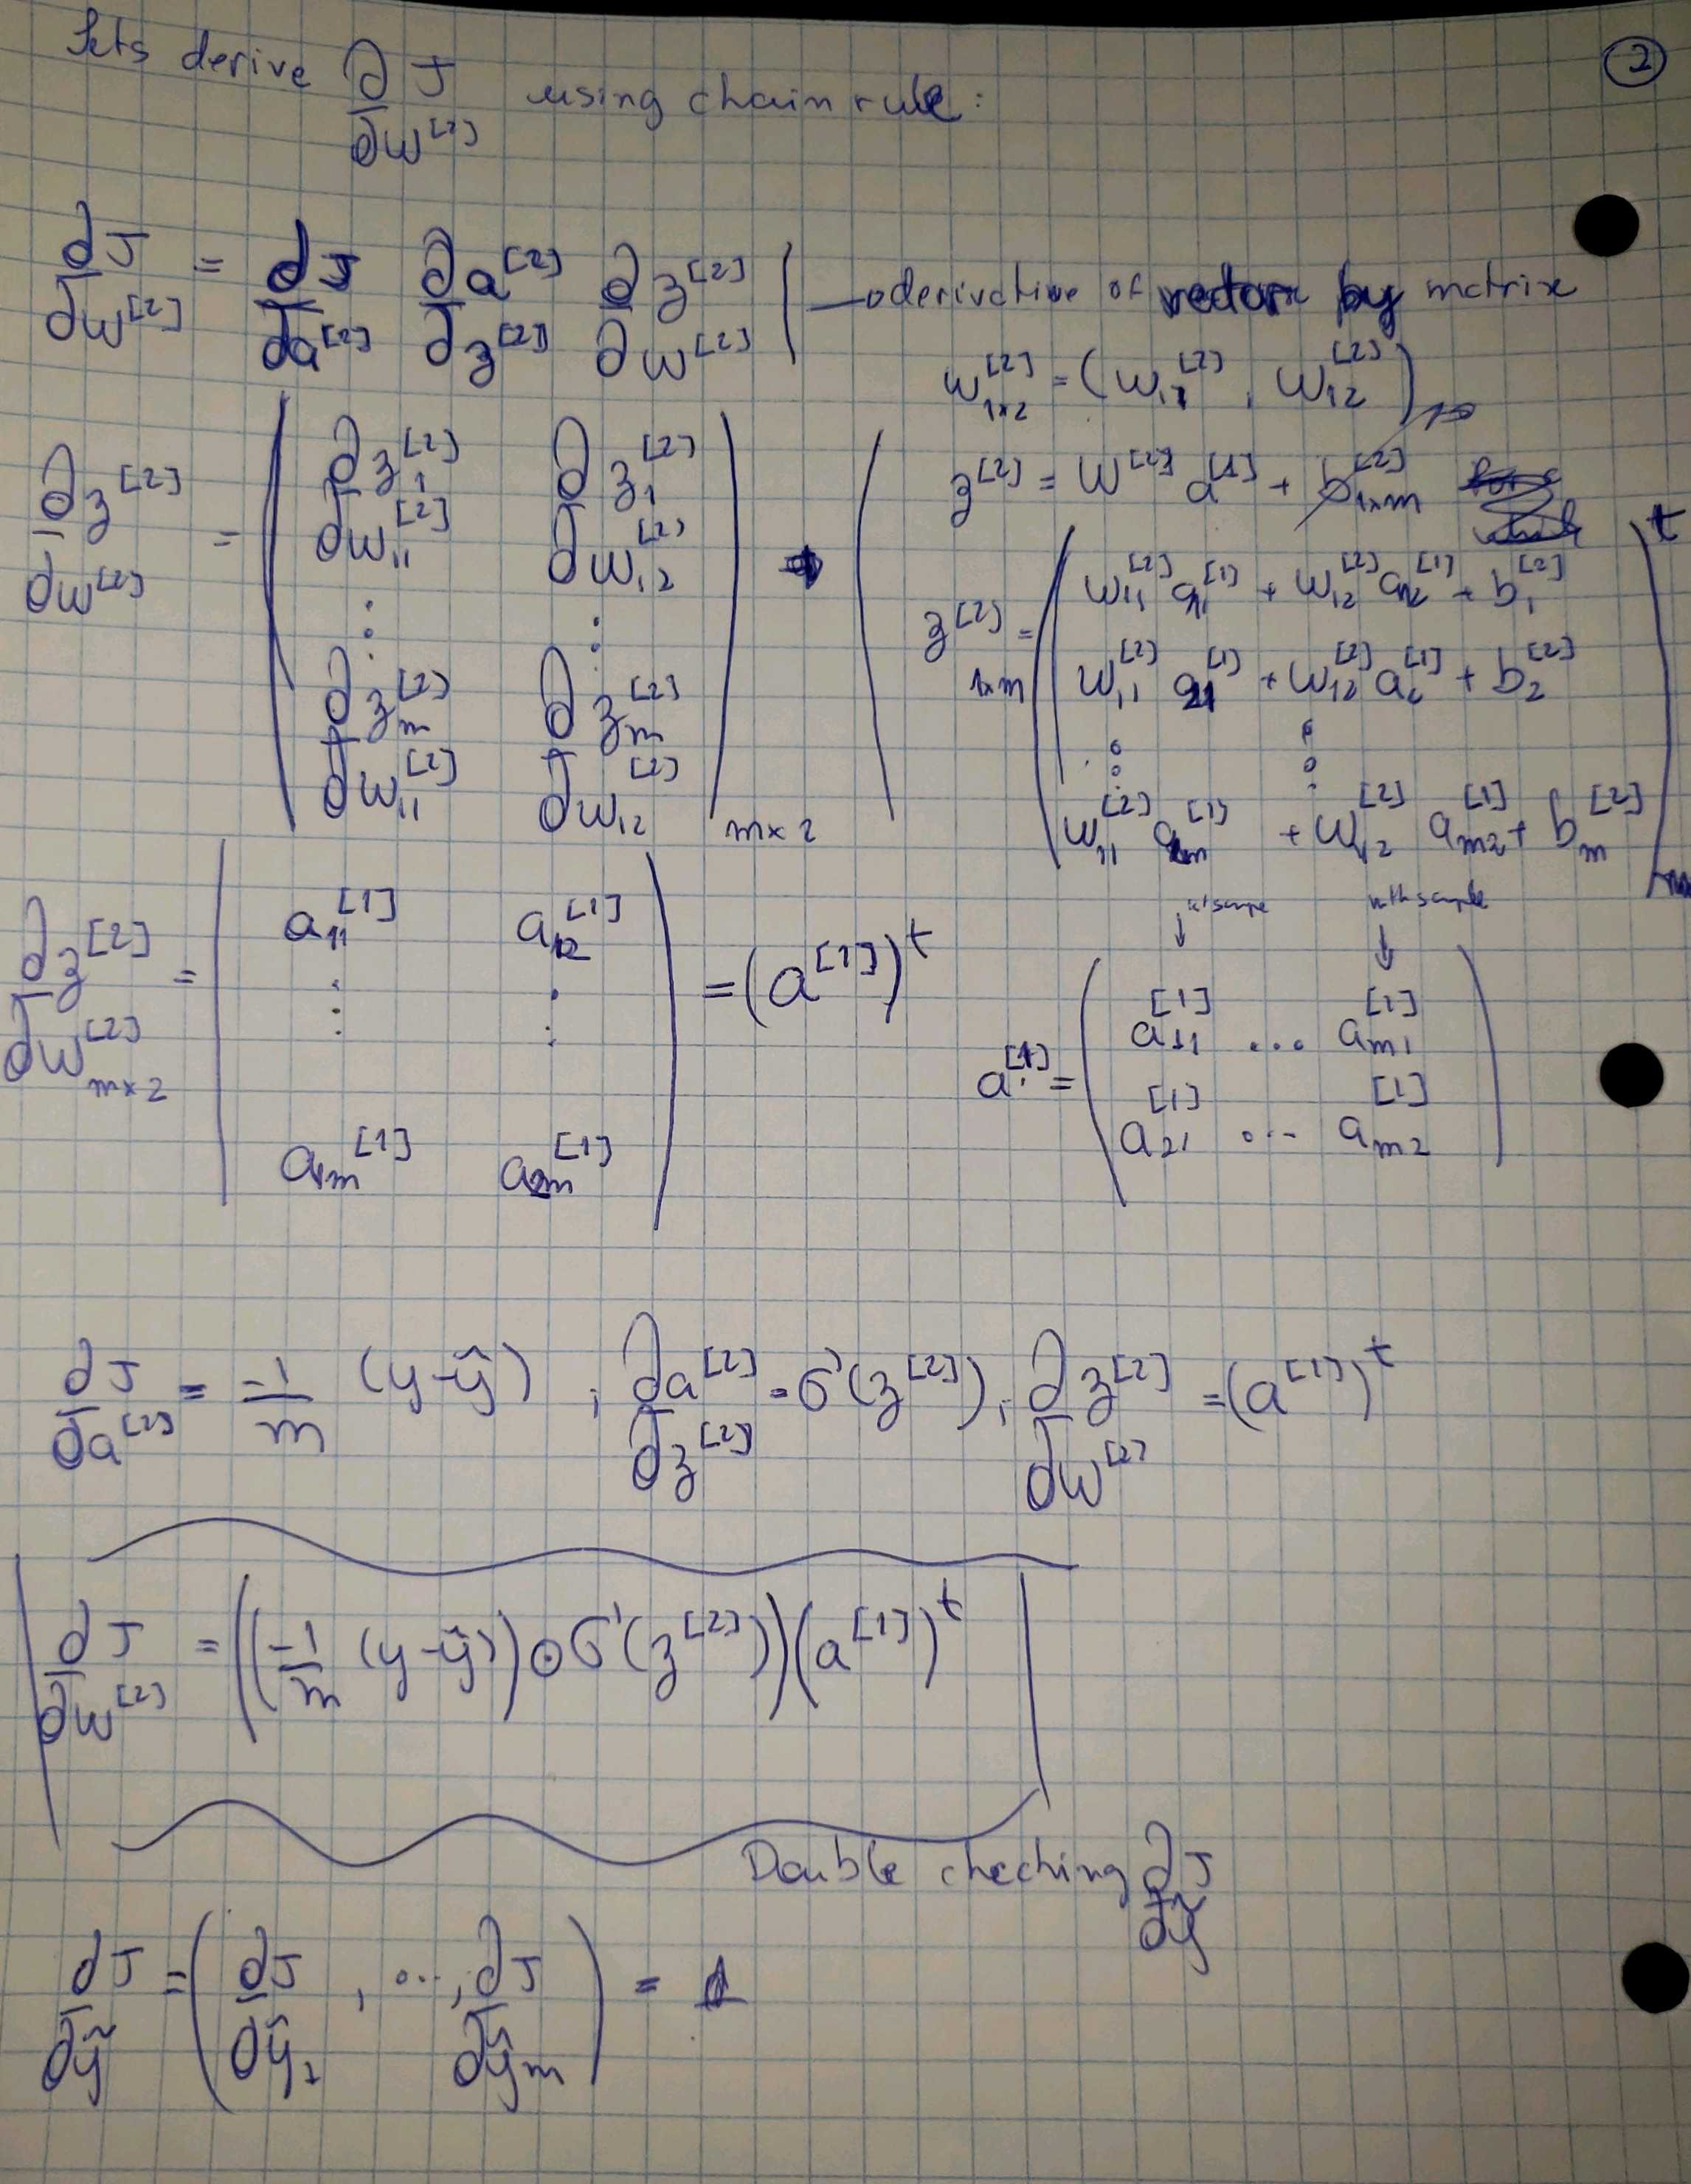 Lets derive ∂J/∂w^[2] using chain rule:
2
∂J/∂w^[2] = ∂J/∂a^[2] ∂a^[2]/∂z^[2] ∂z^[2]/∂w^[2] | → derivative of vector by matrix
w^[2]_1×2 = (w_11^[2], w_12^[2])
z^[2] = W^[2] a^[1] + b^[2]_1×m
∂z^[2]/∂w^[2] = ( ∂z_1^[2]/∂w_11^[2] ∂z_1^[2]/∂w_12^[2]
⋮ ⋮
∂z_m^[2]/∂w_11^[2] ∂z_m^[2]/∂w_12^[2] )_m×2
z^[2]_1×m = ( w_11^[2] a_11^[1] + w_12^[2] a_12^[1] + b_1^[2]
w_11^[2] a_21^[1] + w_12^[2] a_2^[1] + b_2^[2]
⋮ ⋮
w_11^[2] a_m^[1] + w_12^[2] a_m2^[1] + b_m^[2] )^t
∂z^[2]/∂w^[2]_m×2 = ( a_11^[1] a_12^[1]
⋮ ⋮
a_1m^[1] a_2m^[1] ) = (a^[1])^t
1st sample mth sample
↓ ↓
a^[1] = ( a_11^[1] ... a_m1^[1]
a_21^[1] ... a_m2^[1] )
∂J/∂a^[2] = -1/m (y-ŷ) ; ∂a^[2]/∂z^[2] = σ'(z^[2]) ; ∂z^[2]/∂w^[2] = (a^[1])^t
∂J/∂w^[2] = ((-1/m (y-ŷ)) ⊙ σ'(z^[2])) (a^[1])^t
Double checking ∂J/∂ŷ
∂J/∂ŷ = ( ∂J/∂ŷ_1 , ..., ∂J/∂ŷ_m ) =